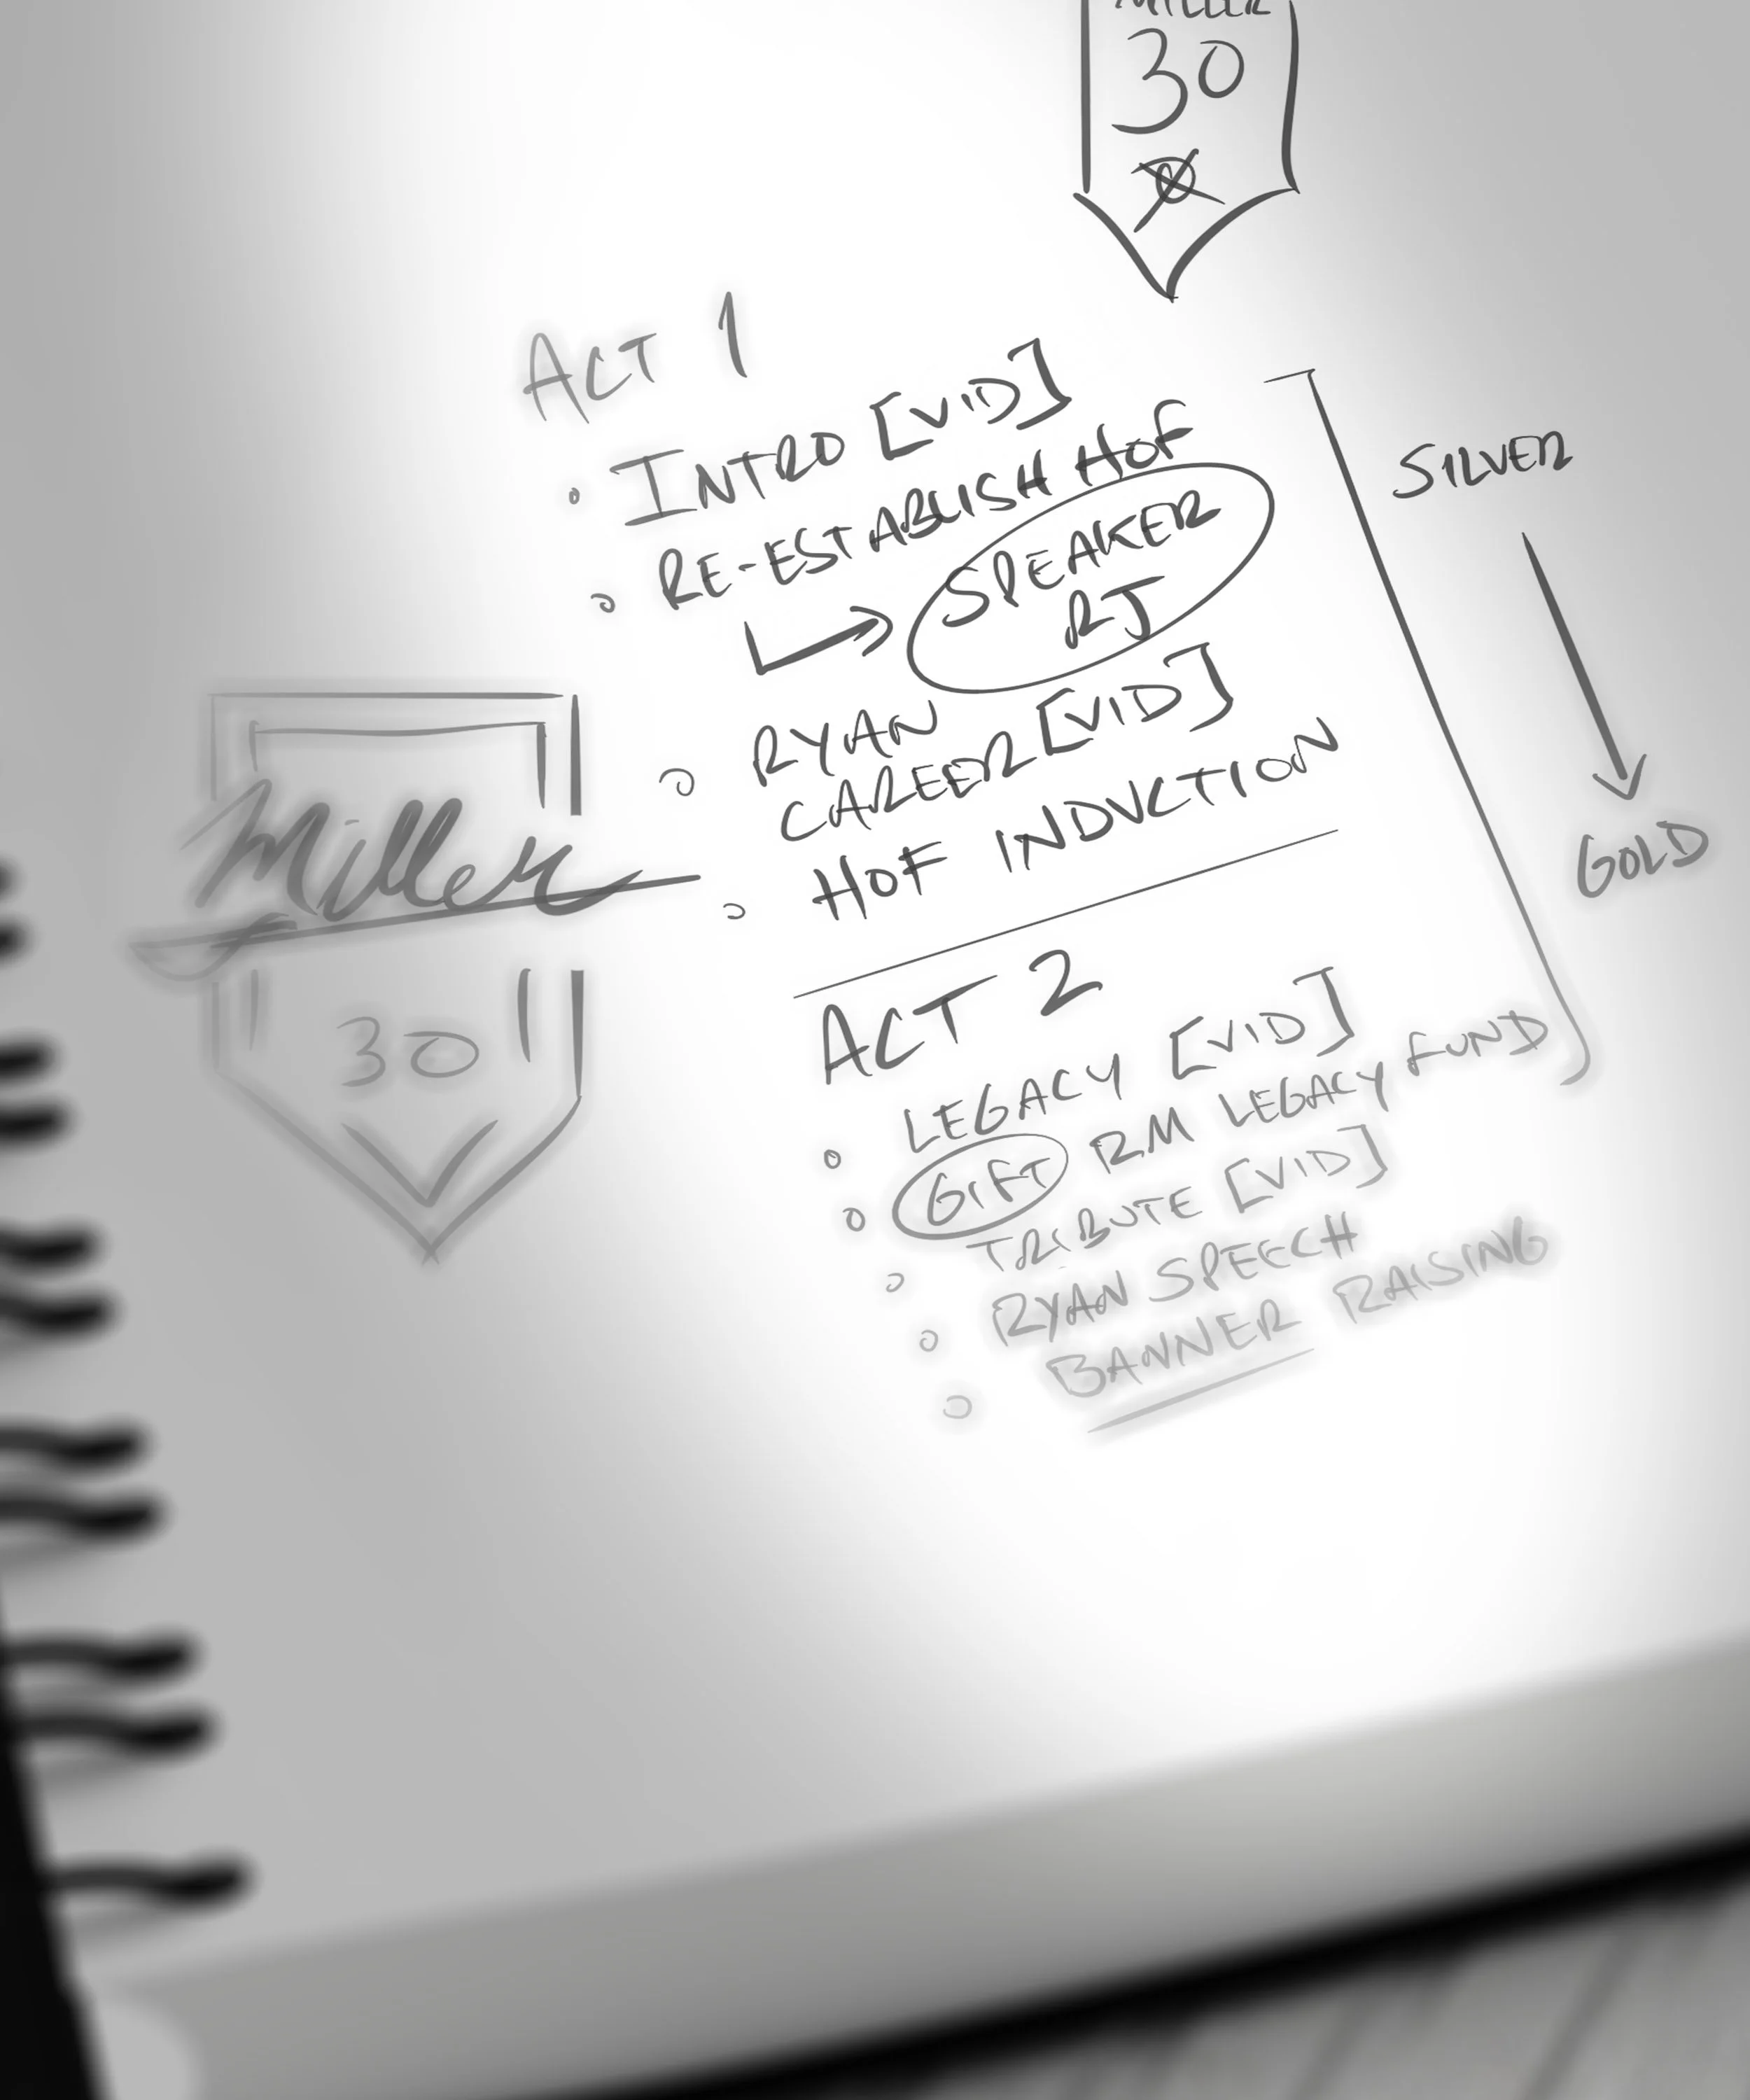 MILLER
30
ACT 1
INTRO [VID]
RE-ESTABLISH HOF
SPEAKER
RJ
RYAN
CAREER [VID]
HOF INDUCTION
SILVER
GOLD
Miller
30
ACT 2
LEGACY [VID]
GIFT RM LEGACY FUND
TRIBUTE [VID]
RYAN SPEECH
BANNER RAISING